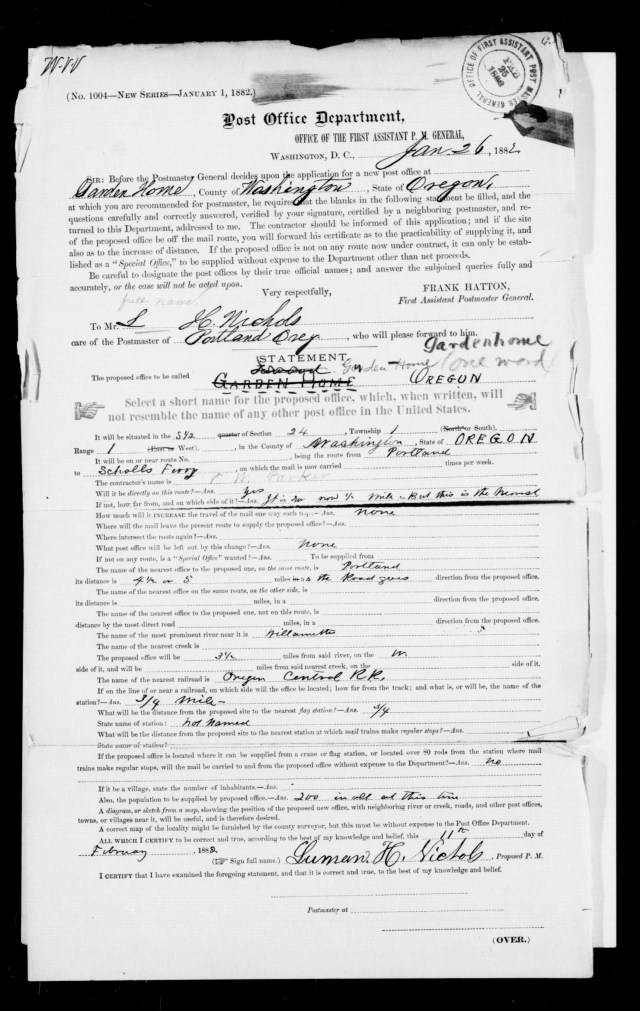 W.V.V
OFFICE OF FIRST ASSISTANT POST MASTER GENERAL
FEB 25
(No. 1004—New Series—January 1, 1882.)
Post Office Department,
OFFICE OF THE FIRST ASSISTANT P. M. GENERAL,
Washington, D. C., Jan. 26, 1882
Sir: Before the Postmaster General decides upon the application for a new post office at
Garden Home, County of Washington, State of Oregon,
at which you are recommended for postmaster, he requires that the blanks in the following statement be filled, and the
questions carefully and correctly answered, verified by your signature, certified by a neighboring postmaster, and re-
turned to this Department, addressed to me. The contractor should be informed of this application; and if the site
of the proposed office be off the mail route, you will forward his certificate as to the practicability of supplying it, and
also as to the increase of distance. If the proposed office is not on any route now under contract, it can only be estab-
lished as a "Special Office," to be supplied without expense to the Department other than net proceeds.
Be careful to designate the post offices by their true official names; and answer the subjoined queries fully and
accurately, or the case will not be acted upon.
Very respectfully,
FRANK HATTON,
First Assistant Postmaster General.
full name.
To Mr. L H. Nichols
care of the Postmaster of Portland Oreg, who will please forward to him.
Gardenhome
STATEMENT.
(one word)
Garden Home
The proposed office to be called Garden Home Oregon
Select a short name for the proposed office, which, when written, will
not resemble the name of any other post office in the United States.
It will be situated in the S½ quarter of Section 24, Township 1 (North or South),
Range 1 (East or West), in the County of Washington, State of OREGON
It will be on or near route No. , being the route from Portland
to Scholls Ferry, on which the mail is now carried times per week.
The contractor's name is Parker
Will it be directly on this route?—Ans. Yes
If not, how far from, and on which side of it?—Ans. It is now ½ mile - But this is the nearest
How much will it increase the travel of the mail one way each trip?—Ans. none
Where will the mail leave the present route to supply the proposed office?—Ans.
Where intersect the route again?—Ans.
What post office will be left out by this change?—Ans. none
If not on any route, is a "Special Office" wanted?—Ans. To be supplied from
The name of the nearest office to the proposed one, on the same route, is Portland
its distance is 4½ or 5 miles in a the Road goes direction from the proposed office.
The name of the nearest office on the same route, on the other side, is
its distance is miles, in a direction from the proposed office.
The name of the nearest office to the proposed one, not on this route, is
distance by the most direct road miles, in a direction from the proposed office.
The name of the most prominent river near it is Willamette
The name of the nearest creek is
The proposed office will be 3½ miles from said river, on the W.
side of it, and will be miles from said nearest creek, on the side of it.
The name of the nearest railroad is Oregon Central RR.
If on the line of or near a railroad, on which side will the office be located; how far from the track; and what is, or will be, the name of the
station?—Ans. 3/4 mile
What will be the distance from the proposed site to the nearest flag station?—Ans. 3/4
State name of station: not Named
What will be the distance from the proposed site to the nearest station at which mail trains make regular stops?—Ans.
State name of station?
If the proposed office is located where it can be supplied from a crane or flag station, or located over 80 rods from the station where mail
trains make regular stops, will the mail be carried to and from the proposed office without expense to the Department?—Ans. no
If it be a village, state the number of inhabitants.—Ans.
Also, the population to be supplied by proposed office.—Ans. 200 in all at this time
A diagram, or sketch from a map, showing the position of the proposed new office, with neighboring river or creek, roads, and other post offices,
towns, or villages near it, will be useful, and is therefore desired.
A correct map of the locality might be furnished by the county surveyor, but this must be without expense to the Post Office Department.
All which I certify to be correct and true, according to the best of my knowledge and belief, this 11th day of
February, 1882.
(Sign full name.) Luman H. Nichols, Proposed P. M.
I certify that I have examined the foregoing statement, and that it is correct and true, to the best of my knowledge and belief.
Postmaster at
(OVER.)